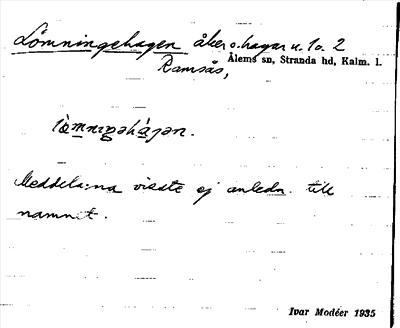 Lömningehagen åker o. hagar u. 1 o. 2
Ålems sn, Stranda hd, Kalm. l.
Ramsås,
lòmnıŋəhágən.
Meddela:na visste ej anledn. till
namnet.
Ivar Modéer 1935